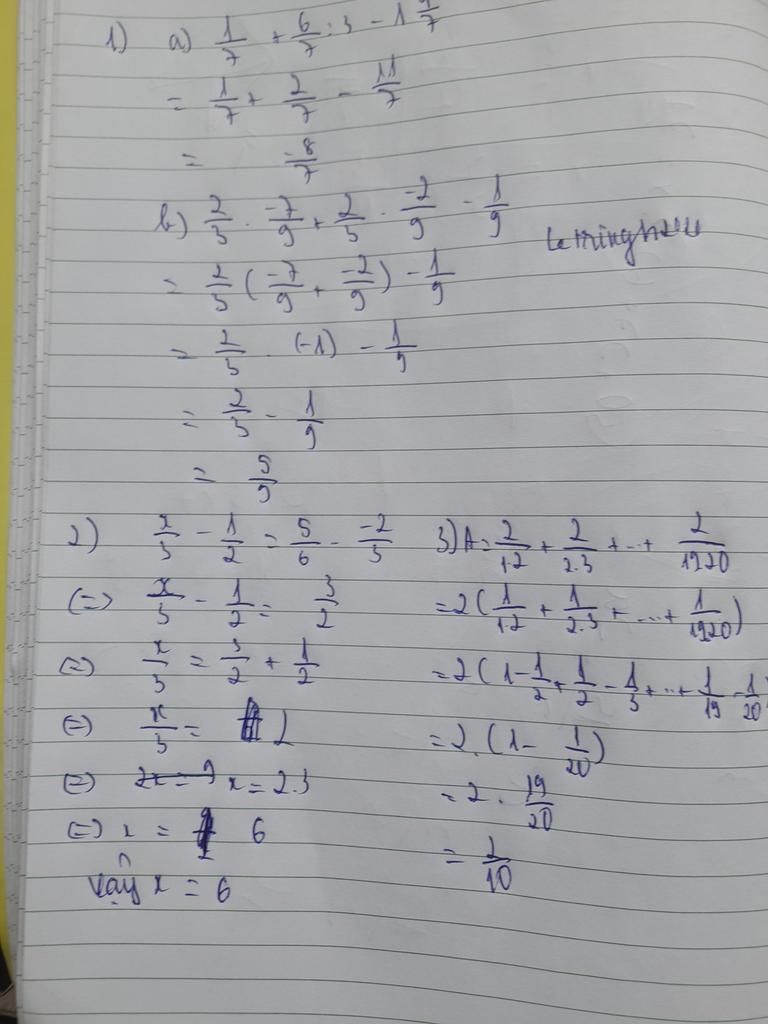 1) a) 1/7 + 6/7 : 3 - 1 4/7
= 1/7 + 2/7 - 11/7
= -8/7
b) 2/3 . -7/9 + 2/3 . -2/9 - 1/9
= 2/3 ( -7/9 + -2/9 ) - 1/9
= 2/3 . (-1) - 1/9
= 2/3 - 1/9
= 5/9
2) x/3 - 1/2 = 5/6 - -2/3
(=) x/3 - 1/2 = 3/2
(=) x/3 = 3/2 + 1/2
(=) x/3 = 2
(=) x = 2.3
(=) x = 6
Vậy x = 6
3) A = 2/1.2 + 2/2.3 + ... + 2/19.20
= 2 ( 1/1.2 + 1/2.3 + ... + 1/19.20 )
= 2 ( 1 - 1/2 + 1/2 - 1/3 + ... + 1/19 - 1/20 )
= 2. ( 1 - 1/20 )
= 2 . 19/20